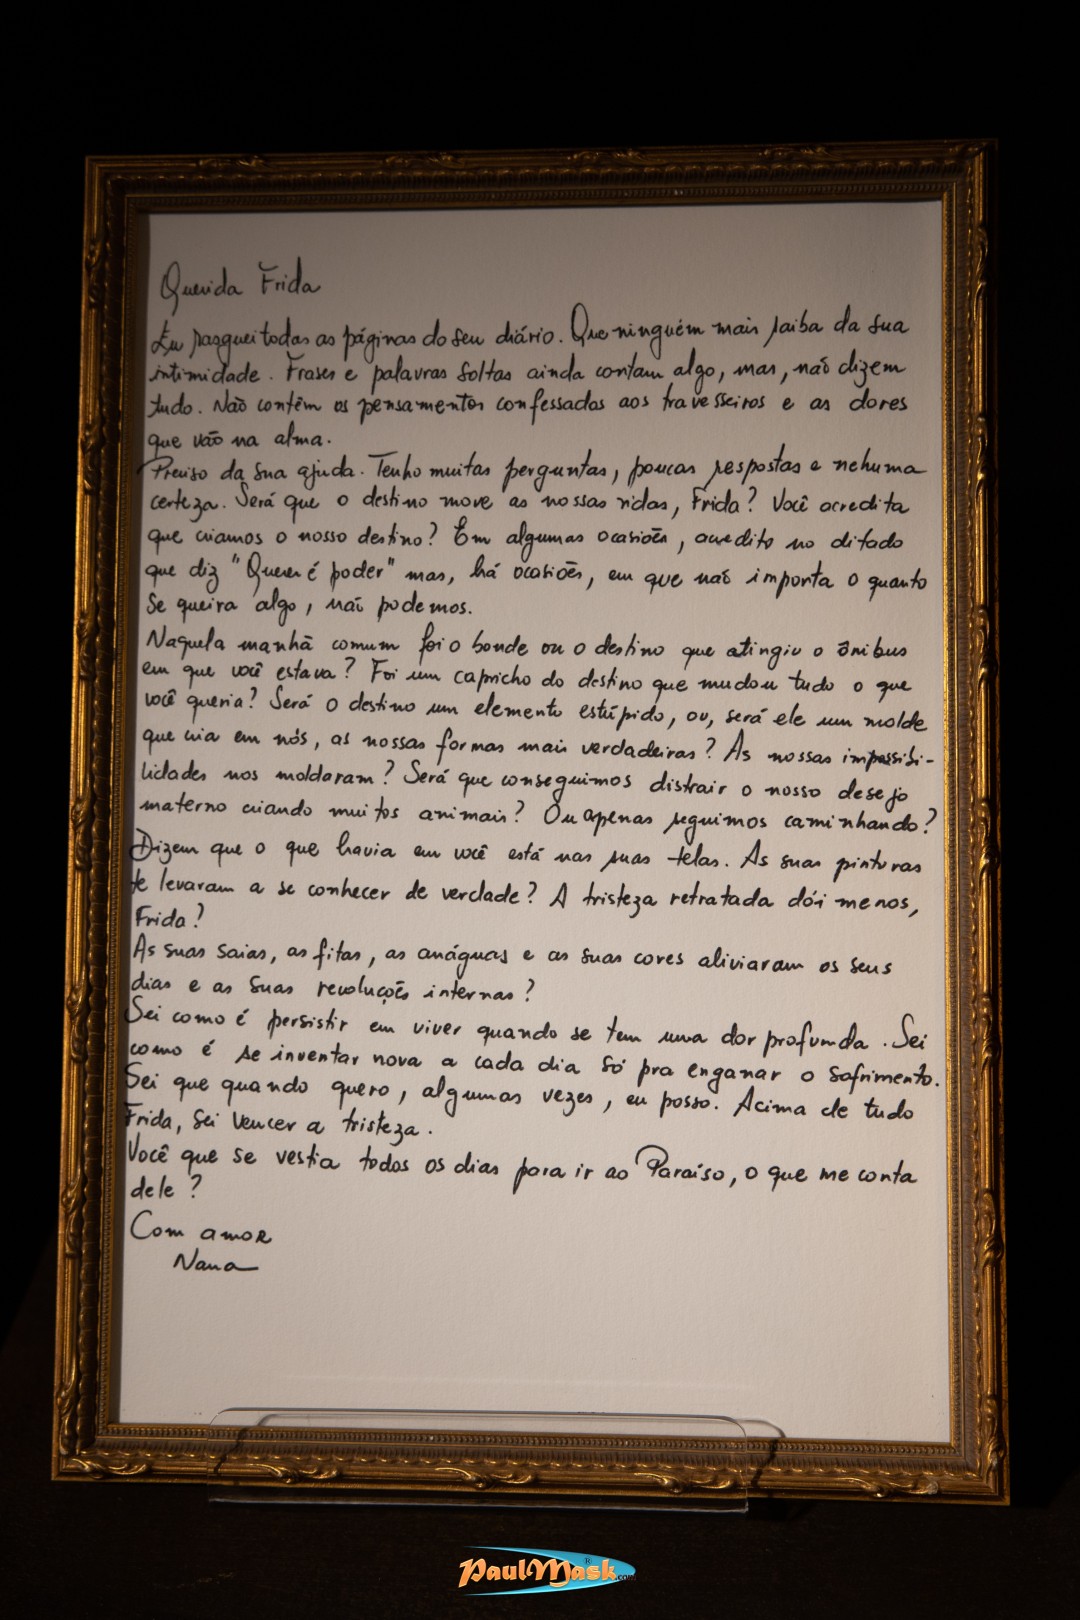 Querida Frida
Eu rasguei todas as páginas do seu diário. Que ninguém mais saiba da sua
intimidade. Frases e palavras soltas ainda contam algo, mas, não dizem
tudo. Não contêm os pensamentos confessados aos travesseiros e as dores
que vão na alma.
Preciso da sua ajuda. Tenho muitas perguntas, poucas respostas e nehuma
certeza. Será que o destino move as nossas vidas, Frida? Você acredita
que criamos o nosso destino? Em algumas ocasiões, acredito no ditado
que diz "Querer é poder" mas, há ocasiões, em que não importa o quanto
se queira algo, não podemos.
Naquela manhã comum foi o bonde ou o destino que atingiu o ônibus
em que você estava? Foi um capricho do destino que mudou tudo o que
você queria? Será o destino um elemento estúpido, ou, será ele um molde
que cria em nós, as nossas formas mais verdadeiras? As nossas impossibi-
lidades nos moldaram? Será que conseguimos distrair o nosso desejo
materno criando muitos animais? Ou apenas seguimos caminhando?
Dizem que o que havia em você está nas suas telas. As suas pinturas
te levaram a se conhecer de verdade? A tristeza retratada dói menos,
Frida?
As suas saias, as fitas, as anáguas e as suas cores aliviaram os seus
dias e as suas revoluções internas?
Sei como é persistir em viver quando se tem uma dor profunda. Sei
como é se inventar nova a cada dia só pra enganar o sofrimento.
Sei que quando quero, algumas vezes, eu posso. Acima de tudo
Frida, sei vencer a tristeza.
Você que se vestia todos os dias para ir ao Paraíso, o que me conta
dele?
Com amor
Nana
PaulMask.com